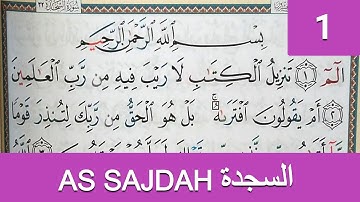 1
بِسْمِ اللَّهِ الرَّحْمَٰنِ الرَّحِيمِ
الٓمٓ ١ تَنزِيلُ الْكِتَابِ لَا رَيْبَ فِيهِ مِن رَّبِّ الْعَالَمِينَ
٢ أَمْ يَقُولُونَ افْتَرَاهُ ۚ بَلْ هُوَ الْحَقُّ مِن رَّبِّكَ لِتُنذِرَ قَوْمًا
AS SAJDAH السجدة